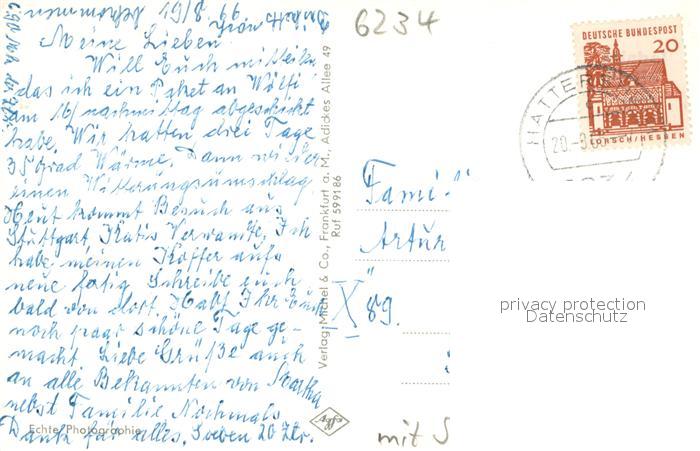 19/8.66
Meine Lieben
Will Euch mitteilen
das ich ein Paket an Wölfi
am 16/nachmittag abgeschickt
habe. Wir hatten drei Tage
35 Grad Wärme. Dann wieder
einen Witterungsumschlag.
Heut kommt Besuch aus
Stuttgart, Katis Verwandte. Ich
habe meinen Koffer aufs
neue fertig Schreibe euch
bald von dort. Habt Ihr Euch
noch paar schöne Tage ge-
macht. Liebe Grüße auch
an alle Bekannten von
nebst Familie Nochmals
Dank für alles. Soeben 20 Ztr.
Echte Photographie
Verlag Michel & Co., Frankfurt a. M., Adickes Allee 49
Ruf 599186
Agfa
6234
DEUTSCHE BUNDESPOST
20
LORSCH/HESSEN
HATTERS
20.-8.66
6234
Fami
Artur
X 89.
mit S
privacy protection
Datenschutz